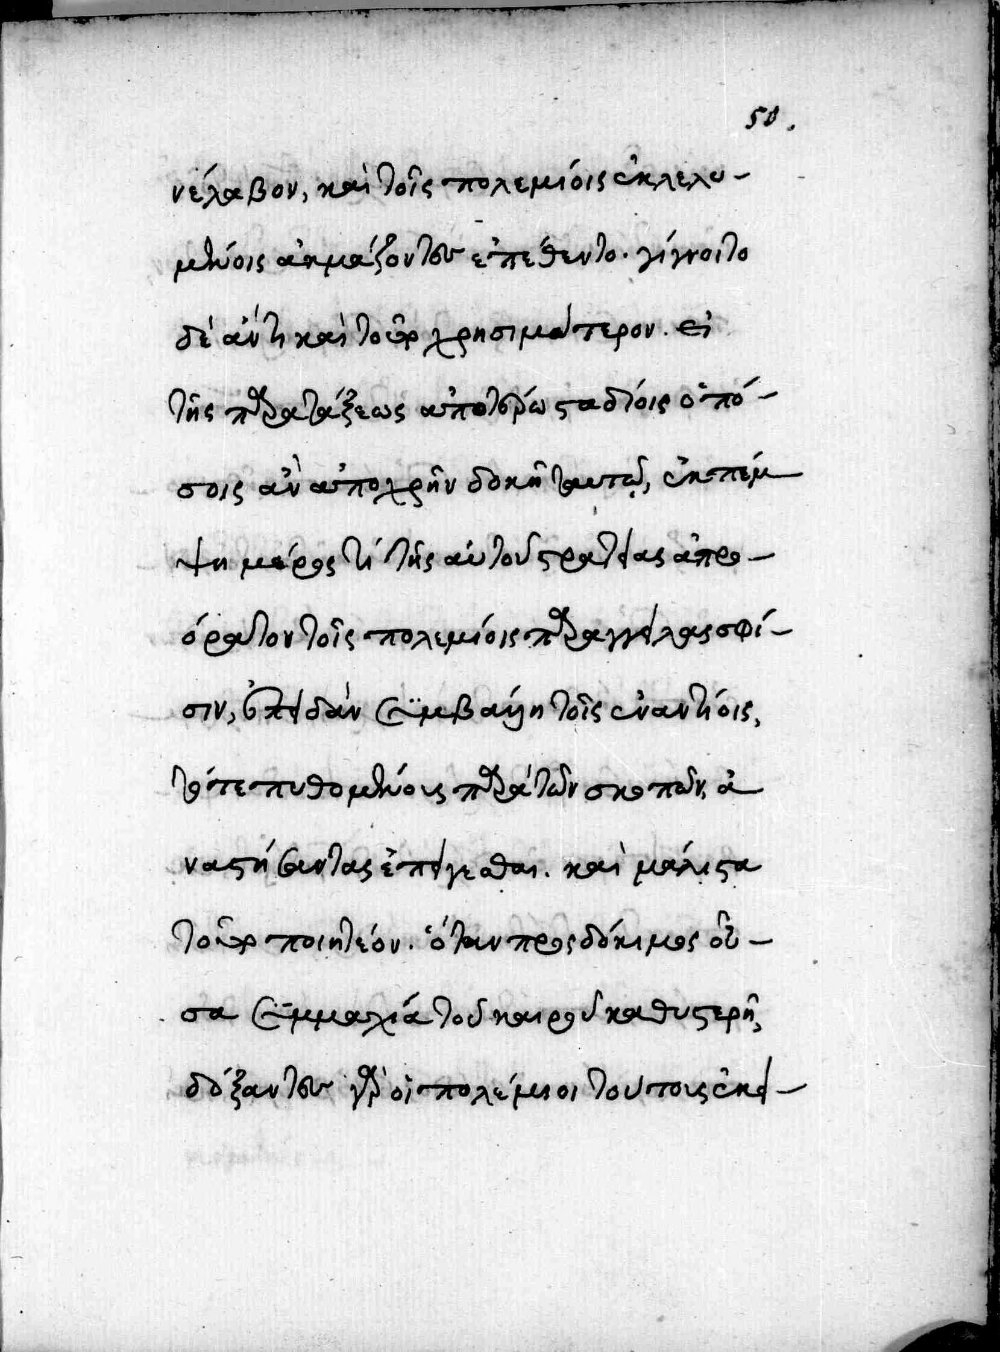 50.
νέλαβον, καὶ τοῖς πολεμίοις ἐκλελυ-
μένοις ἀκμάζοντες ἐπέθεντο. γίγνοιτο
δέ ἄν τι καὶ τοῦτο χρησιμώτερον. εἰ
τῆς παρατάξεως ἀπωτέρω σταδίοις ὁπό-
σοις ἂν ἀποχρῆν δοκῇ αὐτῷ, ἐκπέμ
ψῃ μέρος τὶ τῆς αὐτοῦ στρατιᾶς ἀπρο-
όρατον τοῖς πολεμίοις παραγγείλας σφί-
σιν, ἐπειδὰν συμβάλῃ τοῖς ἐναντίοις,
τότε πυθομένους παρὰ τῶν σκοπῶν, ἀ
ναστήσαντας ἐπείγεσθαι. καὶ μάλιστα
τοῦτο ποιητέον. ὅταν προσδόκιμος οὖ-
σα συμμαχία τοῦ καιροῦ καθυστερῇ,
δόξαντες γὰρ οἱ πολέμιοι τούτους ἐκεί-